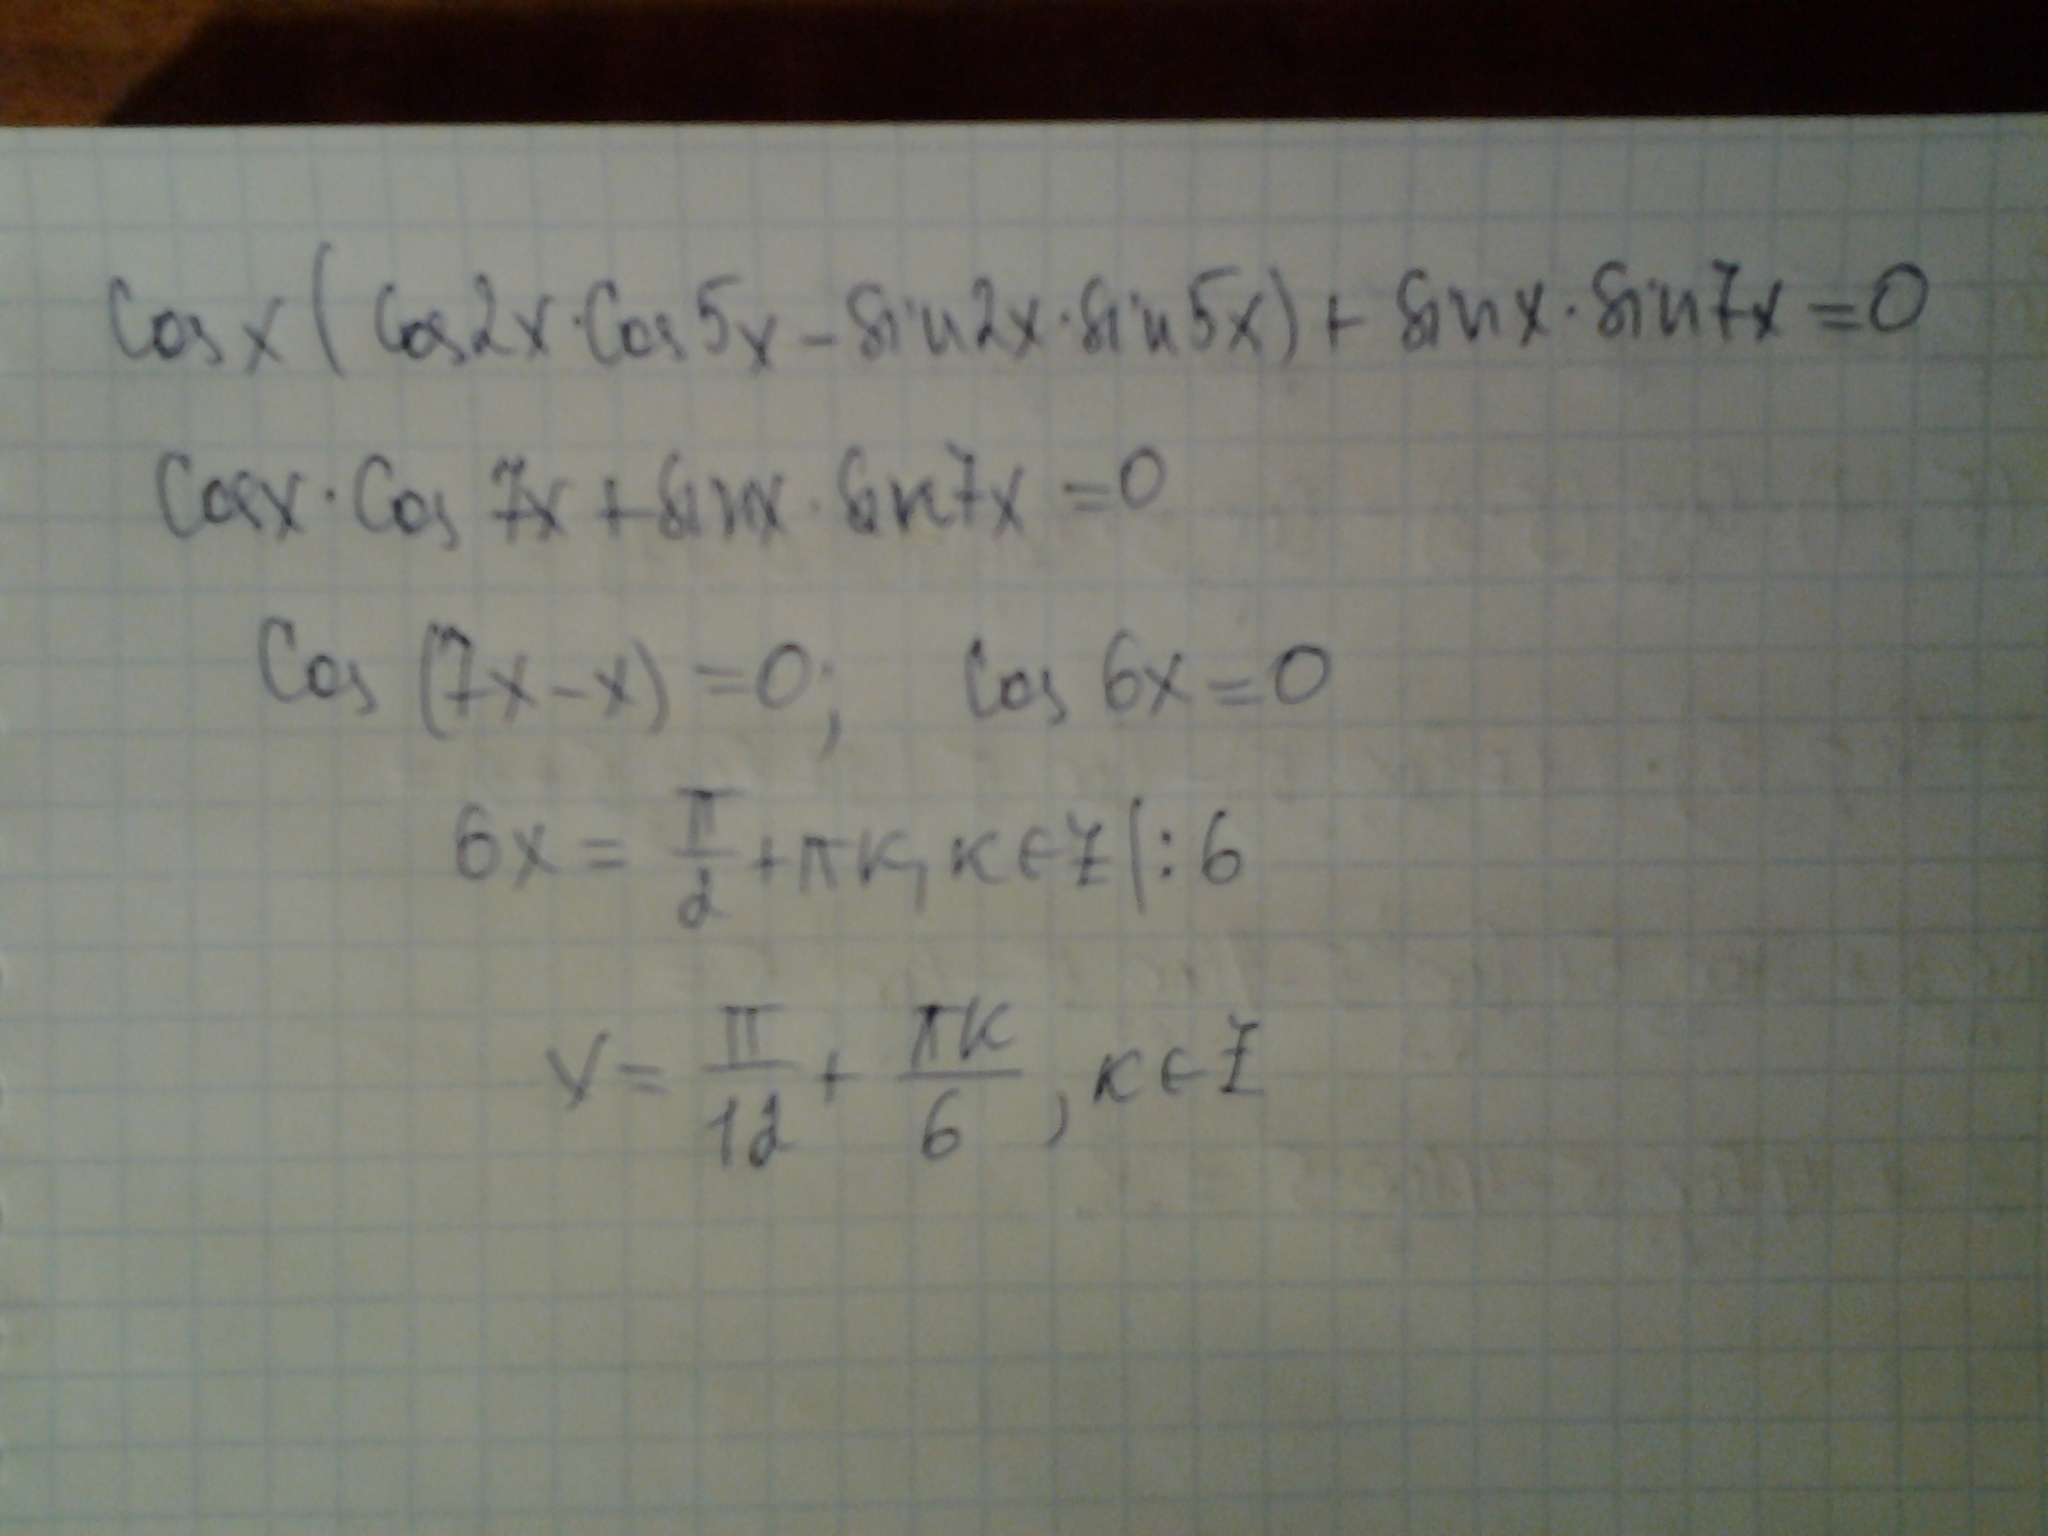 Cos x (Cos2x·Cos5x – Sin2x·Sin5x) + Sinx·Sin7x = 0
Cosx·Cos 7x + Sinx·Sin7x = 0
Cos (7x – x) = 0; Cos 6x = 0
6x = π/2 + πк, к ∈ Z |: 6
x = π/12 + πк/6, к ∈ Z